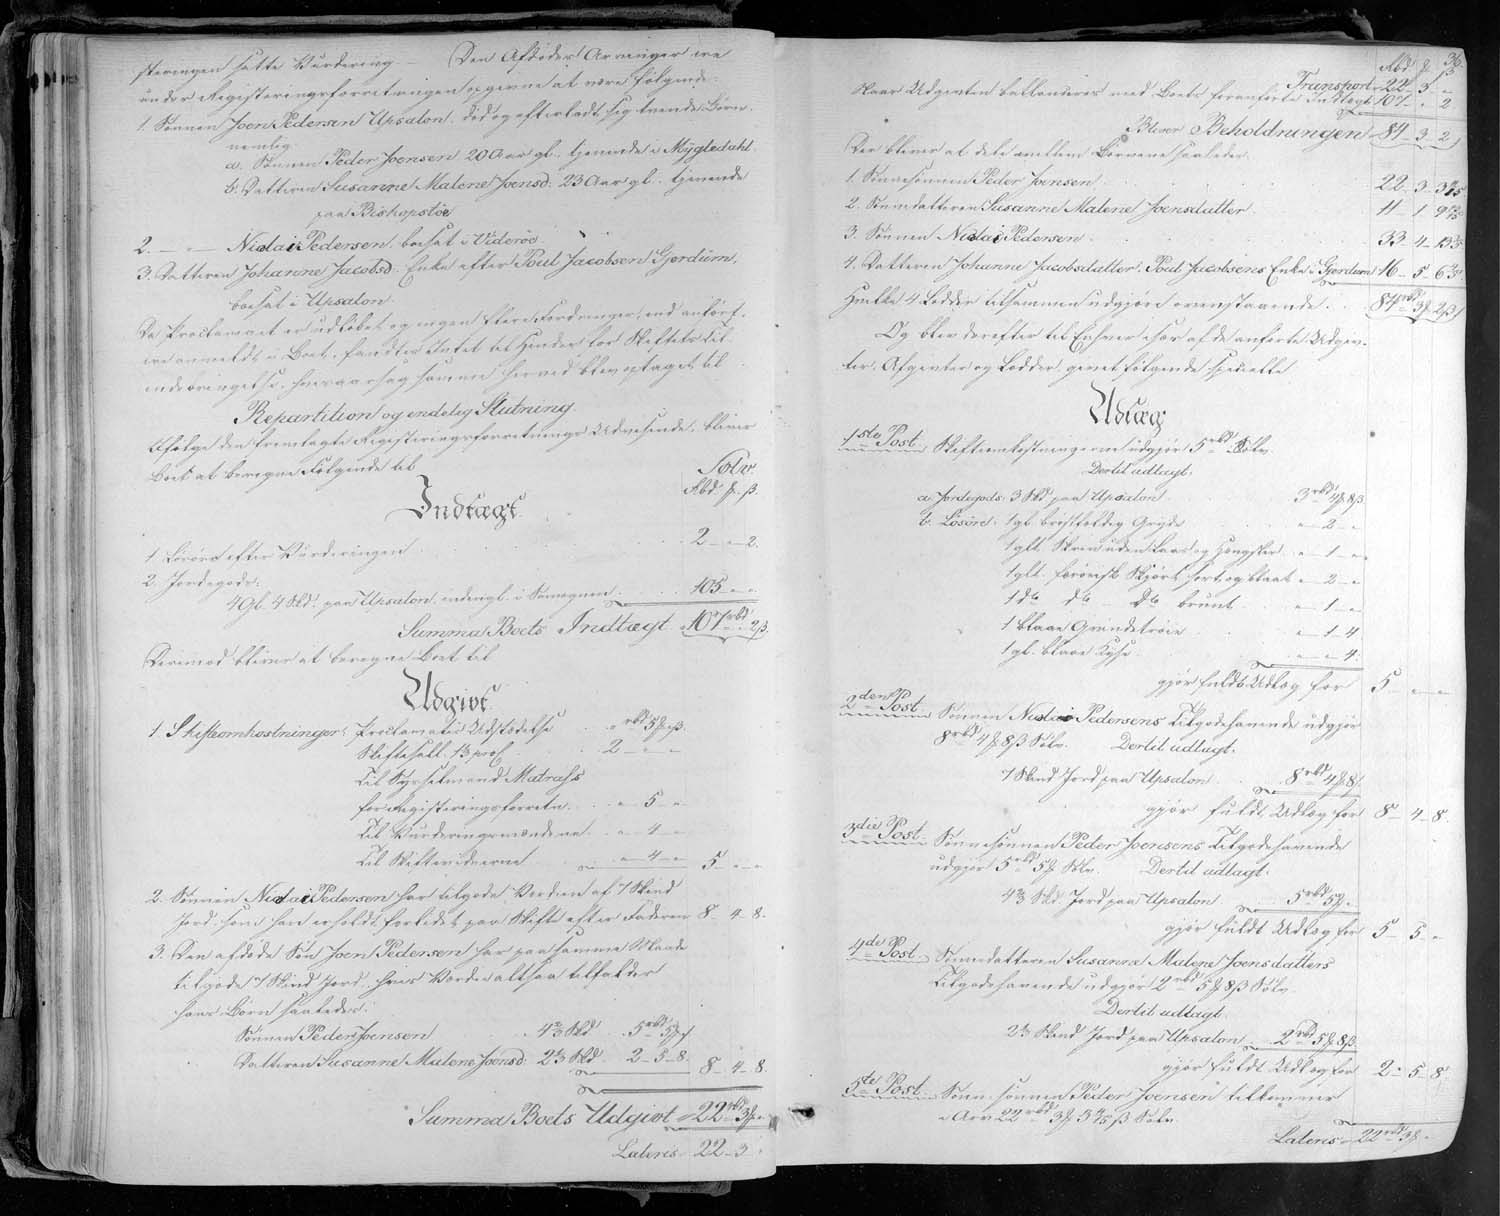 steringen satte Vurdering. — Den Afdødes Arvinger ere
under Registeringsforretningen opgivne at være følgende:
1. Sønnen Joen Pedersen Upsalon, død og efterladt sig tvende Børn
nemlig
a. Sønnen Peder Joensen 20 Aar gl., tjenende i Mygledahl.
b. Datteren Susanne Malene Joensd: 23 Aar gl., tjenende
paa Bishopstøe
2. — „ — Nicolai Pedersen, boesat i Viderøe.
3. Datteren Johanne Jacobsd: Enke efter Poul Jacobsen Gjerdum,
boesat i Upsalon.
Da Proclamaet er udløbet, og ingen flere Fordringer, end anført,
ere anmeldte i Boet, fandtes Intet til Hinder for Skiftets Til-
endebringelse, hvisaarsag samme herved blev optaget til
Repartition og endelig Slutning.
Ifølge den fremlagte Registeringsforretnings Udvisende, bliver
Boet at beregne Følgende til
Sølv.
Rbd. ʄ. ß.
Indtægt.
1. Løsøre efter Vurderingen . . . 2 — „ — 2.
2. Jordegods:
4 Gl. 4 Skd. paa Upsalon, indengl. i Sømagnen . . 105 — „ — „
Summa Boets Indtægt 107 rbd „ 2 ß.
Derimod bliver at beregne Boet til
Udgivt.
1. Skifteomkostninger: Proclamatis Udstædelse . . „ rbd 5 ʄ „ ß.
Skiftesall. 1⅔ proC. . . 2 — „ — „
Til Sysselmand Matrass
for Registeringsforretn. . . „ — 5 — „
Til Vurderingsmændene . . „ — 4 — „
Til Skiftevidnerne . . „ — 4 — „ 5 — „ — „
2. Sønnen Nicolai Pedersen har tilgode Værdien af 7 Skind
Jord, som han erholdt forlidet paa Skifte efter Faderen 8 — 4 — 8.
3. Den afdøde Søn Joen Pedersen har paa samme Maade
tilgode 7 Skind Jord, hvis Værdie altsaa tilfalder
hans Børn saaledes:
Sønnen Peder Joensen . . 4⅔ Skd . . 5 rbd 5 ʄ „
Datteren Susanne Malene Joensd: 2⅓ Skd . . 2 — 5 — 8. 8 — 4 — 8.
Summa Boets Udgivt 22 rbd 3 ʄ „
Lateris 22 — 3 „
36.
Rbd ʄ ß
Transport 22 — 3 — „
Naar Udgivten ballanceres med Boets foranførte Indtægt 107 — „ — 2
Bliver Beholdningen 84 — 3 — 2
Der bliver at dele mellem Børnene saaledes:
1. Sønnesønnen Peder Joensen . . . 22 — 3 — 3 11/15
2. Sønnedatteren Susanne Malene Joensdatter . . 11 — 1 — 9 13/15
3. Sønnen Nicolai Pedersen . . . 33 — 4 — 13 3/5
4. Datteren Johanne Jacobsdatter, Poul Jacobsens Enke i Gjerdum 16 — 5 — 6 4/5
Hvilke 4 Lodder tilsammen udgjøre ovenstaaende . . 84 rbd 3 ʄ 2 ß
Og blev derefter til Enhver især af de anførte Udgiv-
ter, Afgivter og Lodder, givet følgende specielle
Udlæg
1ste Post. Skifteomkostningerne udgjør 5 rbd Sølv.
Dertil udlagt.
a. Jordegods: 3 Skd paa Upsalon . . . 3 rbd 4 ʄ 8 ß
b. Løsøre: 1 gl. bristfeldig Gryde . . „ — 2 — „
1 glt. Skrin uden Laas og Hængsler . . „ — 1 — „
1 glt. færøeisk Skjørt sort og blaat „ — 2 — „
1 do do — do brunt . . „ — 1 — „
1 blaae Grundetrøie . . „ — 1 — 4
1 gl. blaae Kyse . . „ — „ — 4.
gjør fuldt Udlæg for 5 — „ — „
2den Post. Sønnen Nicolai Pedersens Tilgodehavende udgjør
8 rbd 4 ʄ 8 ß Sølv. Dertil udlagt.
7 Skind Jord paa Upsalon . . 8 rbd 4 ʄ 8.
gjør fuldt Udlæg for 8 — 4 — 8.
3die Post. Sønnesønnen Peder Joensens Tilgodehavende
udgjør 5 rbd 5 ʄ Sølv. Dertil udlagt.
4⅔ Skd. Jord paa Upsalon . . 5 rbd 5 ʄ „
gjør fuldt Udlæg for 5 — 5 — „
4de Post. Sønnedatteren Susanne Malene Joensdatters
Tilgodehavende udgjør 2 rbd 5 ʄ 8 ß Sølv.
Dertil udlagt.
2⅓ Skind Jord paa Upsalon . . 2 rbd 5 ʄ 8 ß.
gjør fuldt Udlæg for 2 — 5 — 8.
5te Post. Sønnesønnen Peder Joensen tilkommer
i Arv 22 rbd 3 ʄ 3 11/15 ß Sølv.
Lateris 22 rbd 3 ʄ „